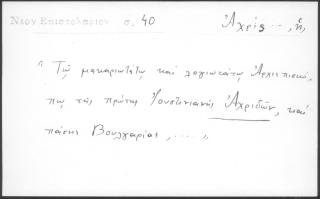 Νεον Επιστολαριον σ. 40
Ἀχρίς..., ἡ,
"Τῷ μακαριωτάτῳ καὶ λογιωτάτῳ Ἀρχιεπισκό-
πῳ τῆς πρώτης Ἰουστινιανῆς Ἀχριδῶν, καὶ
πάσης Βουλγαρίας, ....."